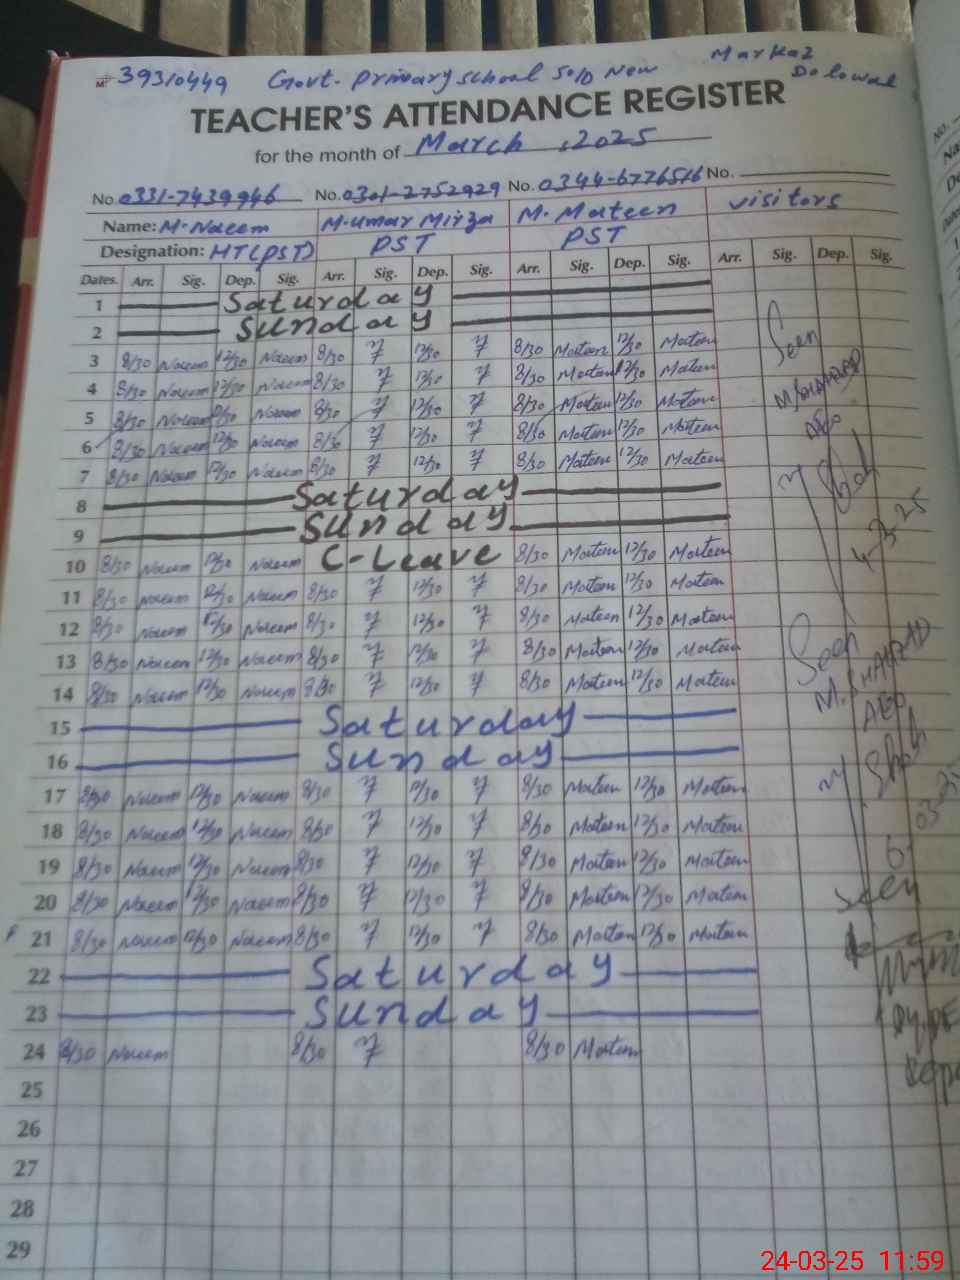 39310449 Govt. Primary school Markaz
Dolowal
TEACHER'S ATTENDANCE REGISTER
for the month of March, 2025
No. 0331-7439946 No. 0301-2752929 No. 0344-6776516 No.
Name: M. Naeem M. Umar Mirza M. Mateen visitors
Designation: HT(PST) PST PST
Dates. Arr. Sig. Dep. Sig. Arr. Sig. Dep. Sig. Arr. Sig. Dep. Sig. Arr. Sig. Dep. Sig.
1 Saturday
2 Sunday
3 8/30 Naeem 12/30 Naeem 8/30 12/30 8/30 Mateen 12/30 Mateen Seen
4 8/30 Naeem 12/30 Naeem 8/30 12/30 8/30 Mateen 12/30 Mateen M.SHAHZAD
5 8/30 Naeem 12/30 Naeem 8/30 12/30 8/30 Mateen 12/30 Mateen AEO
6 8/30 Naeem 12/30 Naeem 8/30 12/30 8/30 Mateen 12/30 Mateen
7 8/30 Naeem 12/30 Naeem 8/30 12/30 8/30 Mateen 12/30 Mateen
8 Saturday
9 Sunday 4-3-25
10 8/30 Naeem 12/30 Naeem C-Leave 8/30 Mateen 12/30 Mateen
11 8/30 Naeem 12/30 Naeem 8/30 12/30 8/30 Mateen 12/30 Mateen
12 8/30 Naeem 12/30 Naeem 8/30 12/30 8/30 Mateen 12/30 Mateen
13 8/30 Naeem 12/30 Naeem 8/30 12/30 8/30 Mateen 12/30 Mateen Seen
14 8/30 Naeem 12/30 Naeem 8/30 12/30 8/30 Mateen 12/30 Mateen M.SHAHZAD
15 Saturday AEO
16 Sunday
17 8/30 Naeem 12/30 Naeem 8/30 12/30 8/30 Mateen 12/30 Mateen
18 8/30 Naeem 12/30 Naeem 8/30 12/30 8/30 Mateen 12/30 Mateen
19 8/30 Naeem 12/30 Naeem 8/30 12/30 8/30 Mateen 12/30 Mateen
20 8/30 Naeem 12/30 Naeem 8/30 12/30 8/30 Mateen 12/30 Mateen seen
21 8/30 Naeem 12/30 Naeem 8/30 12/30 8/30 Mateen 12/30 Mateen
22 Saturday
23 Sunday
24 8/30 Naeem 8/30 8/30 Mateen
25
26
27
28
29
24-03-25 11:59